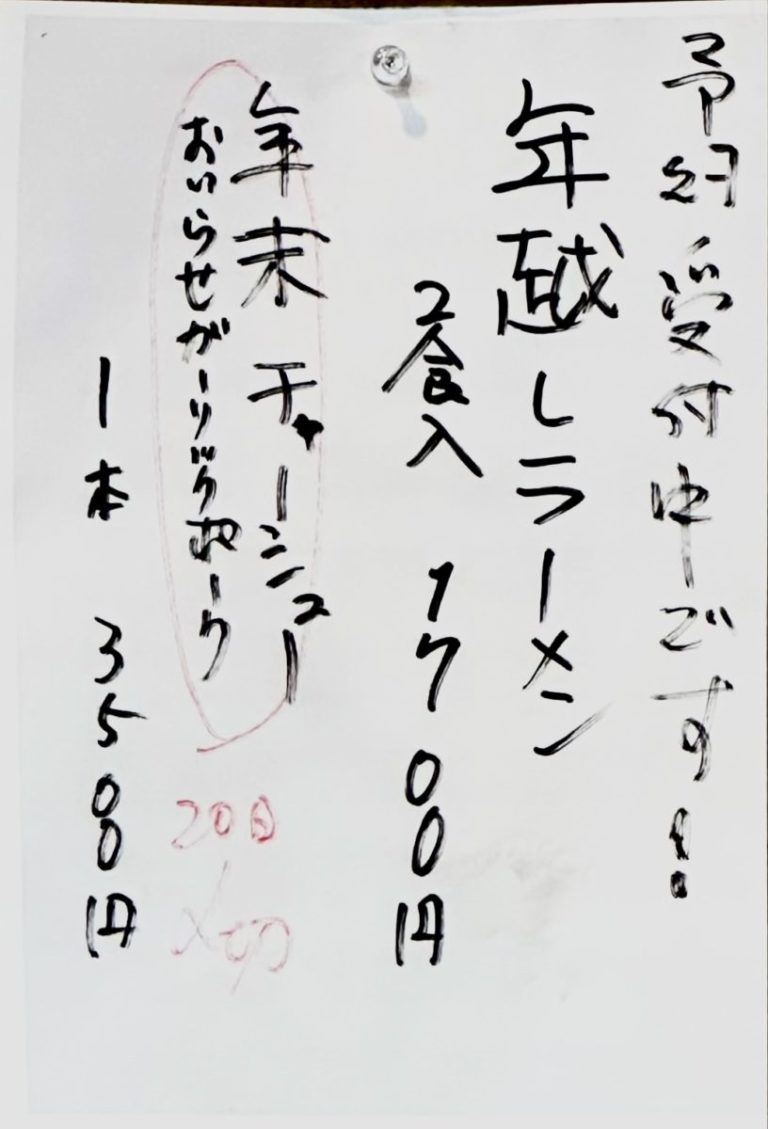 予約受付中です!
年越しラーメン
2食入 1700円
年末チャーシュー
おいらせガーリックポーク
20日
〆切
1本 3500円